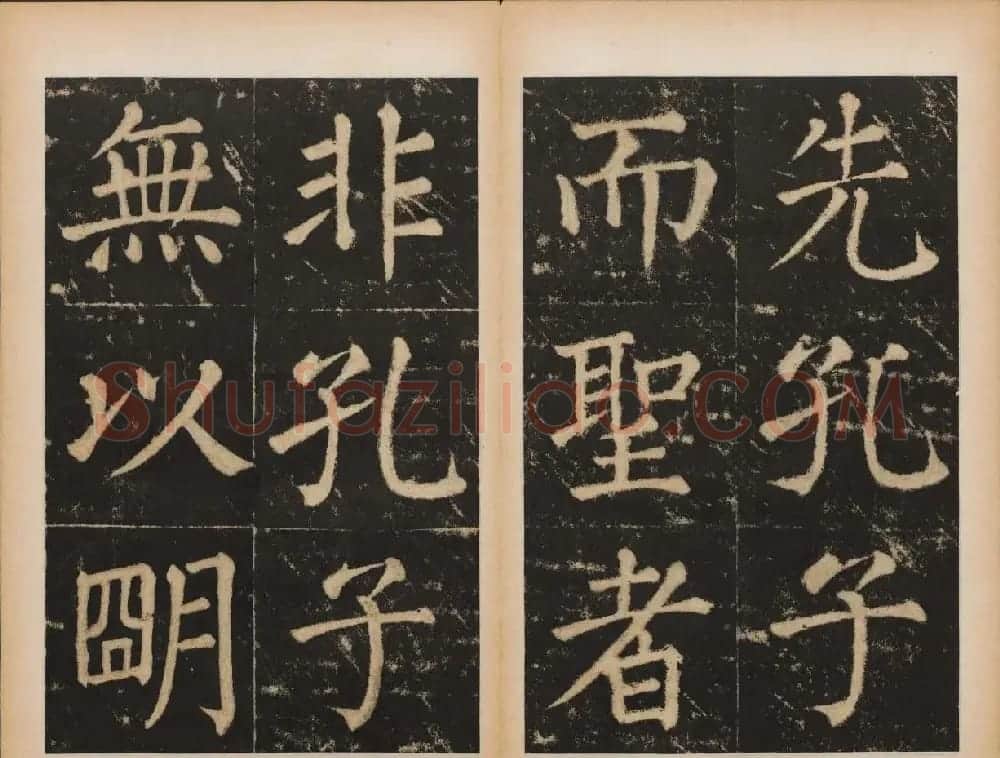 先孔子
而聖者
非孔子
無以朙
Shufaziliao.COM